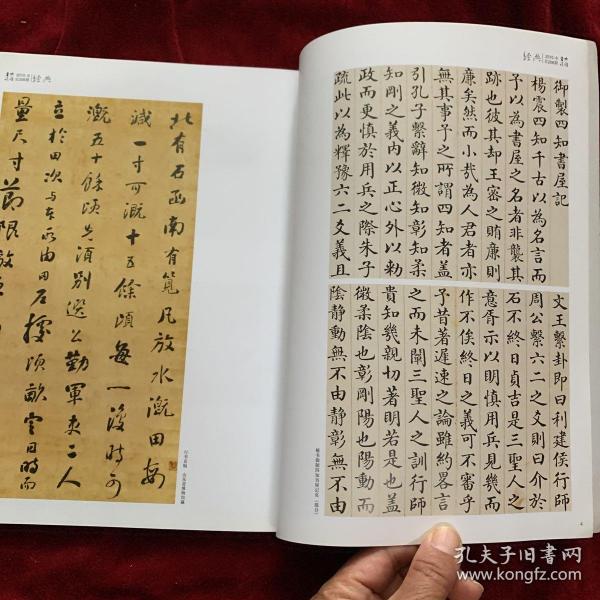 经典
北有石函南有笕凡放水溉田每
减一寸可溉十五餘顷每一復时可
溉五十餘顷先须别选公勤軍吏二人
立於田次与本所由田户據顷畝定日时而
量尺寸節限放
经典
御製四知書屋記
楊震四知千古以為名言而
予以為書屋之名者非襲其
跡也彼其却王密之賄廉則
廉矣然而小哉為人君者亦
無其事予之所謂四知者蓋
引孔子繫辭知微知彰知柔
知剛之義内以正心外以勅
政而更慎於用兵之際朱子
疏此以為釋豫六二爻義且
文王繫卦即曰利建侯行師
周公繫六二之爻則曰介於
石不終日貞吉是三聖人之
意胥示以明慎用兵見幾而
作不俟終日之義可不審乎
予昔著遲速之論雖約畧言
之而未闡三聖人之訓行師
貴知幾親切著明若是也蓋
微柔陰也彰剛陽也陽動而
陰静動無不由静彰無不由
孔夫子旧书网
www.kongfz.com